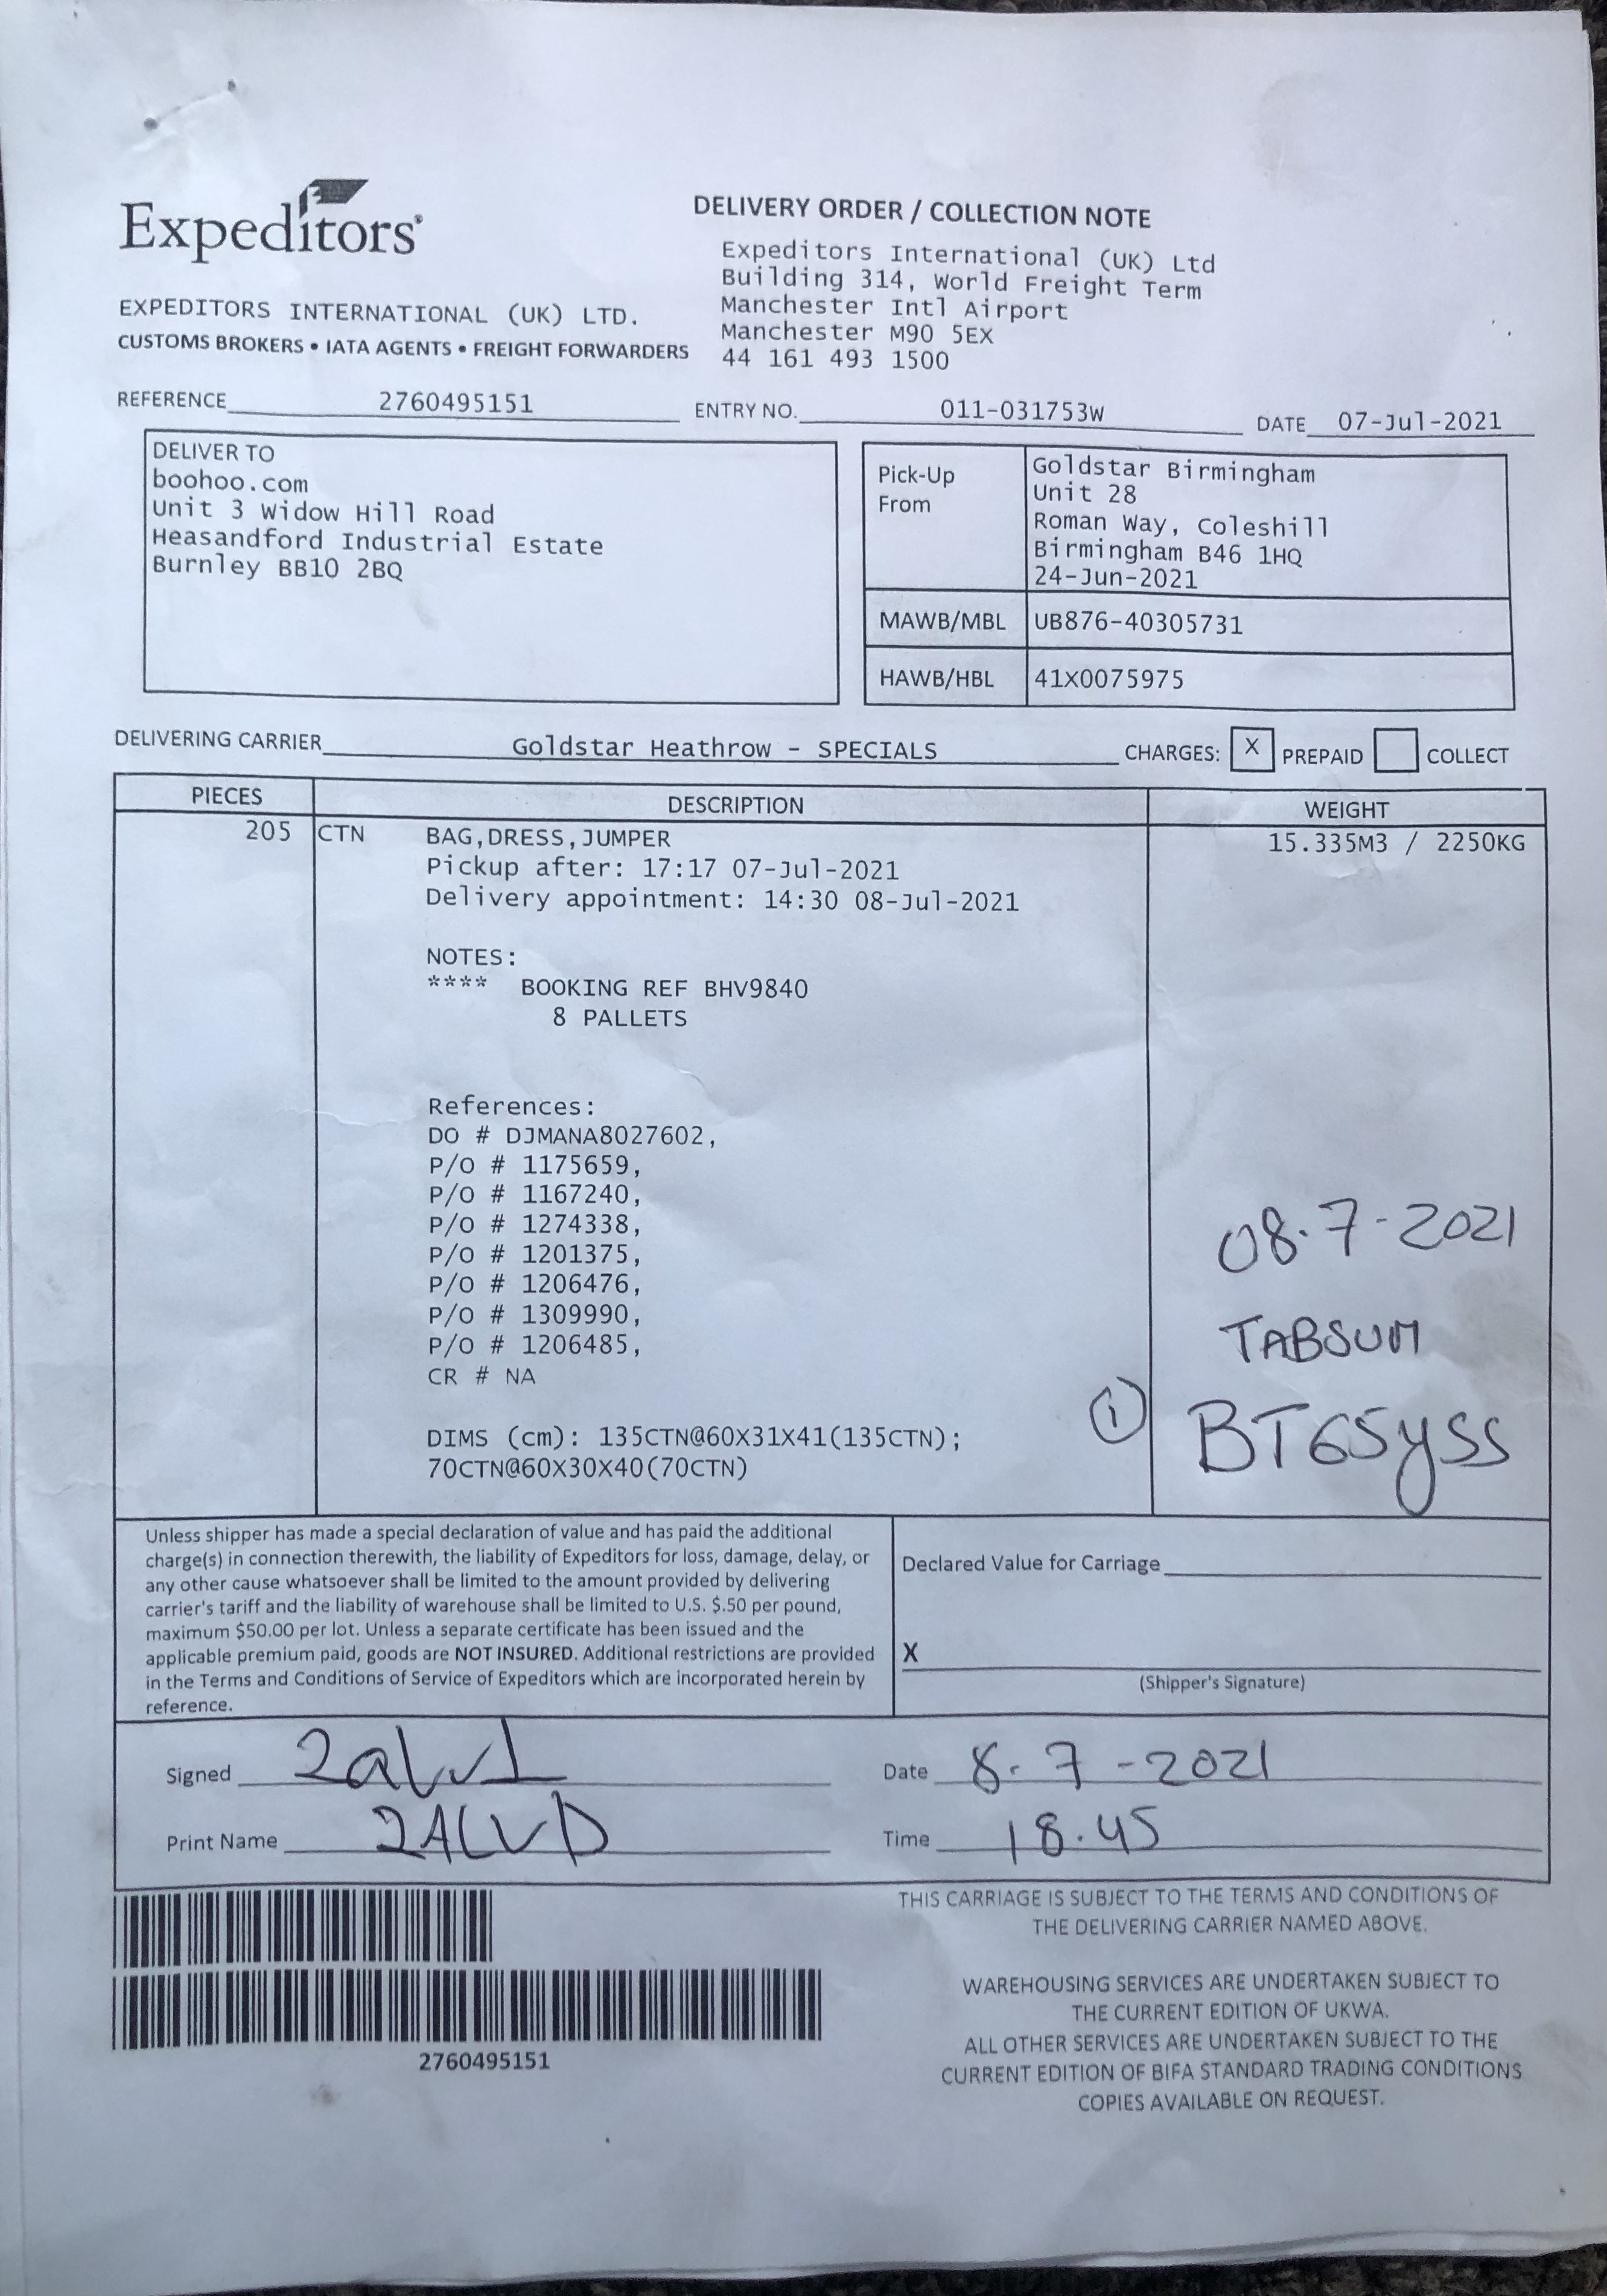 Expeditors
EXPEDITORS INTERNATIONAL (UK) LTD.
CUSTOMS BROKERS • IATA AGENTS • FREIGHT FORWARDERS
DELIVERY ORDER / COLLECTION NOTE
Expeditors International (UK) Ltd
Building 314, World Freight Term
Manchester Intl Airport
Manchester M90 5EX
44 161 493 1500
REFERENCE 2760495151 ENTRY NO. 011-031753W DATE 07-Jul-2021
DELIVER TO
boohoo.com
Unit 3 Widow Hill Road
Heasandford Industrial Estate
Burnley BB10 2BQ
Pick-Up From
Goldstar Birmingham
Unit 28
Roman Way, Coleshill
Birmingham B46 1HQ
24-Jun-2021
MAWB/MBL UB876-40305731
HAWB/HBL 41X0075975
DELIVERING CARRIER Goldstar Heathrow - SPECIALS CHARGES: X PREPAID COLLECT
PIECES DESCRIPTION WEIGHT
205 CTN BAG,DRESS,JUMPER 15.335M3 / 2250KG
Pickup after: 17:17 07-Jul-2021
Delivery appointment: 14:30 08-Jul-2021
NOTES:
**** BOOKING REF BHV9840
8 PALLETS
References:
DO # DJMANA8027602,
P/O # 1175659,
P/O # 1167240,
P/O # 1274338,
P/O # 1201375,
P/O # 1206476,
P/O # 1309990,
P/O # 1206485,
CR # NA
DIMS (cm): 135CTN@60X31X41(135CTN);
70CTN@60X30X40(70CTN)
08.7-2021
TABSUM
1 BT65YSS
Unless shipper has made a special declaration of value and has paid the additional
charge(s) in connection therewith, the liability of Expeditors for loss, damage, delay, or
any other cause whatsoever shall be limited to the amount provided by delivering
carrier's tariff and the liability of warehouse shall be limited to U.S. $.50 per pound,
maximum $50.00 per lot. Unless a separate certificate has been issued and the
applicable premium paid, goods are NOT INSURED. Additional restrictions are provided
in the Terms and Conditions of Service of Expeditors which are incorporated herein by
reference.
Declared Value for Carriage
X
(Shipper's Signature)
Signed
Date 8.7-2021
Print Name
Time 18.45
2760495151
THIS CARRIAGE IS SUBJECT TO THE TERMS AND CONDITIONS OF
THE DELIVERING CARRIER NAMED ABOVE.
WAREHOUSING SERVICES ARE UNDERTAKEN SUBJECT TO
THE CURRENT EDITION OF UKWA.
ALL OTHER SERVICES ARE UNDERTAKEN SUBJECT TO THE
CURRENT EDITION OF BIFA STANDARD TRADING CONDITIONS
COPIES AVAILABLE ON REQUEST.